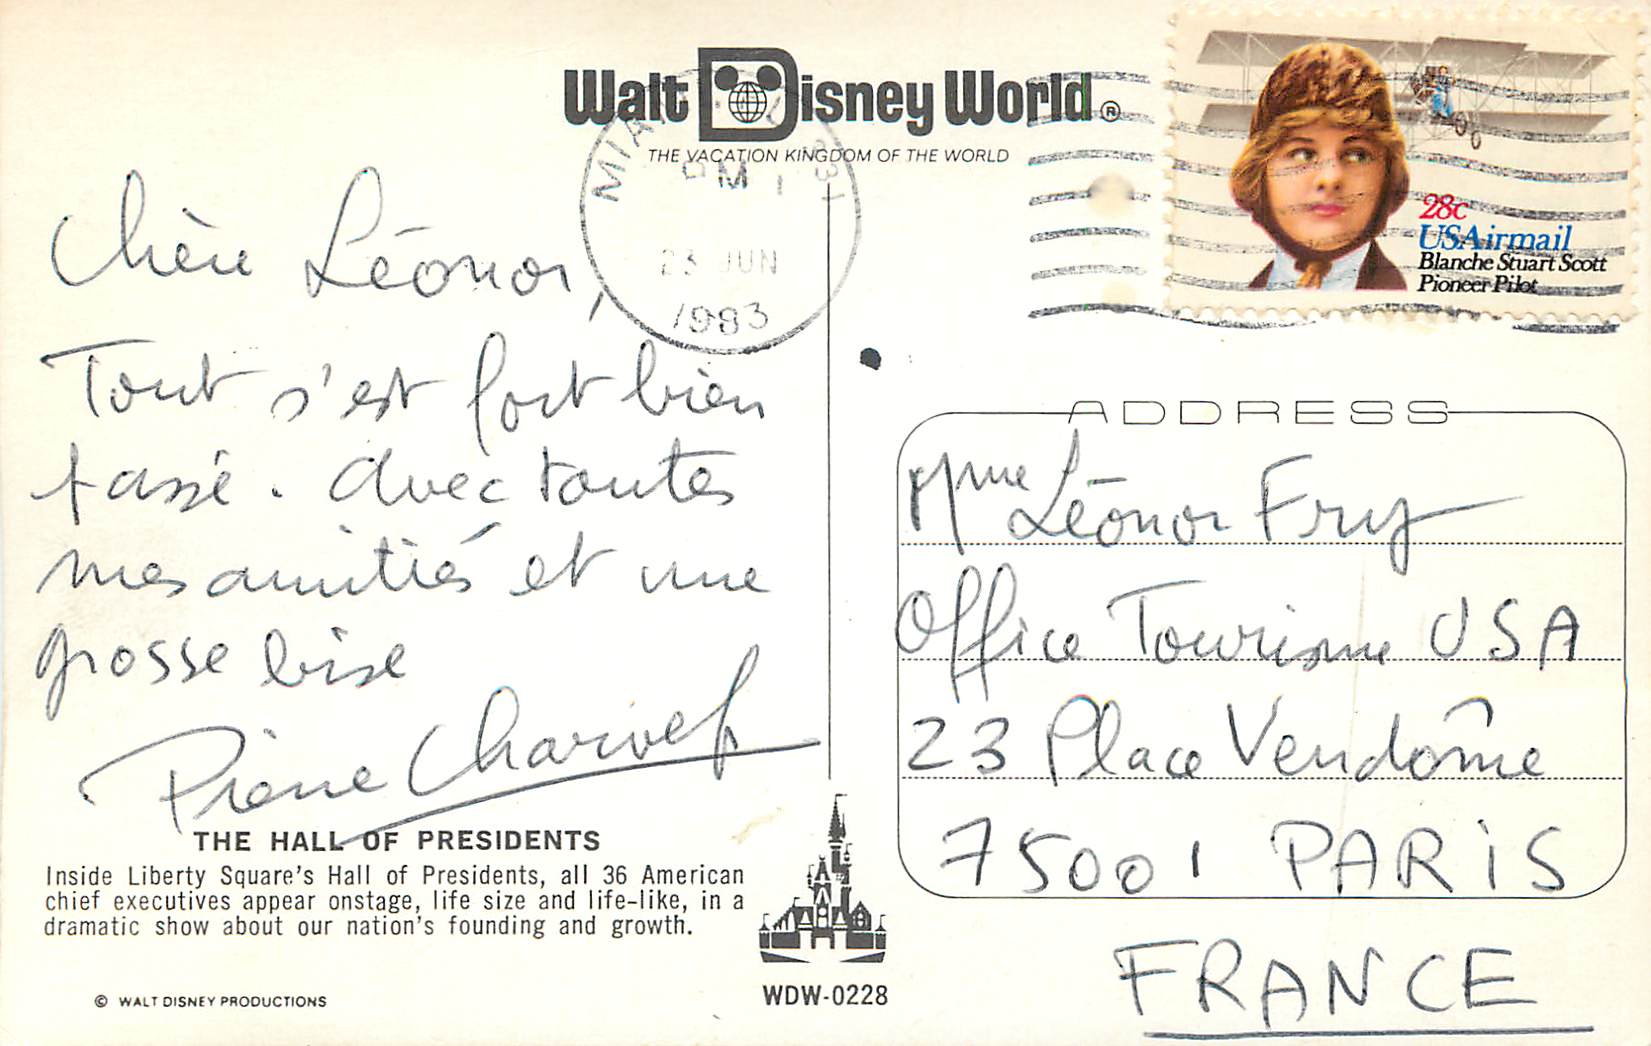 Walt Disney World ®
THE VACATION KINGDOM OF THE WORLD
PM
23 JUN
1983
28c
USAirmail
Blanche Stuart Scott
Pioneer Pilot
Chère Léonor,
Tout s'est fort bien
passé. Avec toutes
mes amitiés et une
grosse bise
Pierre
THE HALL OF PRESIDENTS
Inside Liberty Square's Hall of Presidents, all 36 American
chief executives appear onstage, life size and life-like, in a
dramatic show about our nation's founding and growth.
© WALT DISNEY PRODUCTIONS
WDW-0228
ADDRESS
Mme Léonor Fry
Office Tourisme USA
23 Place Vendôme
75001 PARIS
FRANCE